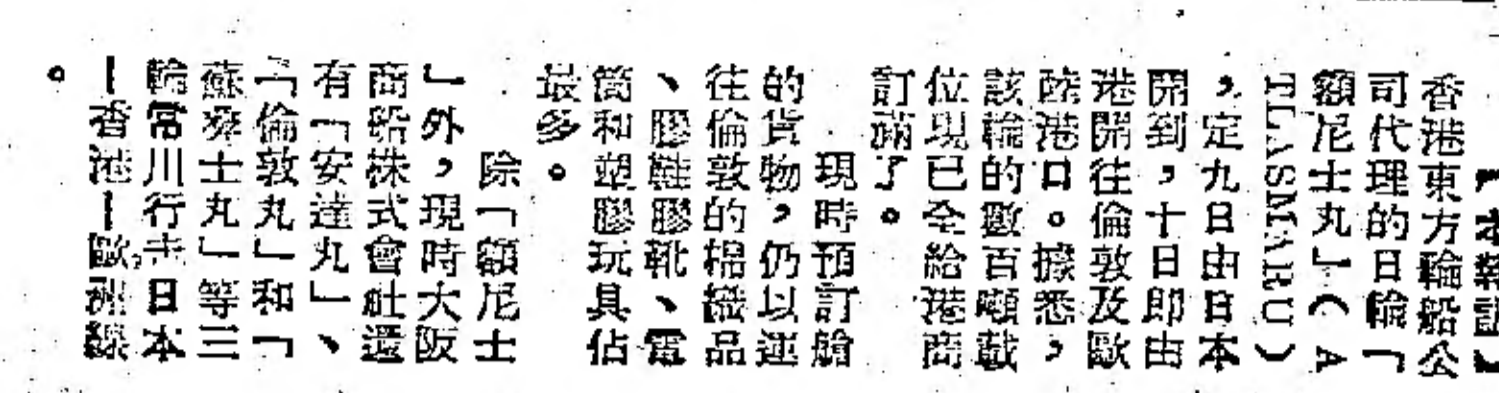 【本報訊】
香港東方輪船公
司代理的日輪「
額尼士丸」（A
TLASMARU）
，定九日由日本
開到，十日即由
港開往倫敦及歐
陸港口。據悉，
該輪的數百噸載
位現已全給港商
訂滿了。
現時預訂艙
的貨物，仍以運
往倫敦的棉織品
、膠鞋膠靴、電
筒和塑膠玩具佔
最多。
除「額尼士
」外，現時大阪
商船株式會社還
有「安達丸」、
「倫敦丸」和「
蘇彝士丸」等三
輪常川行走日本
—香港—歐洲線
。